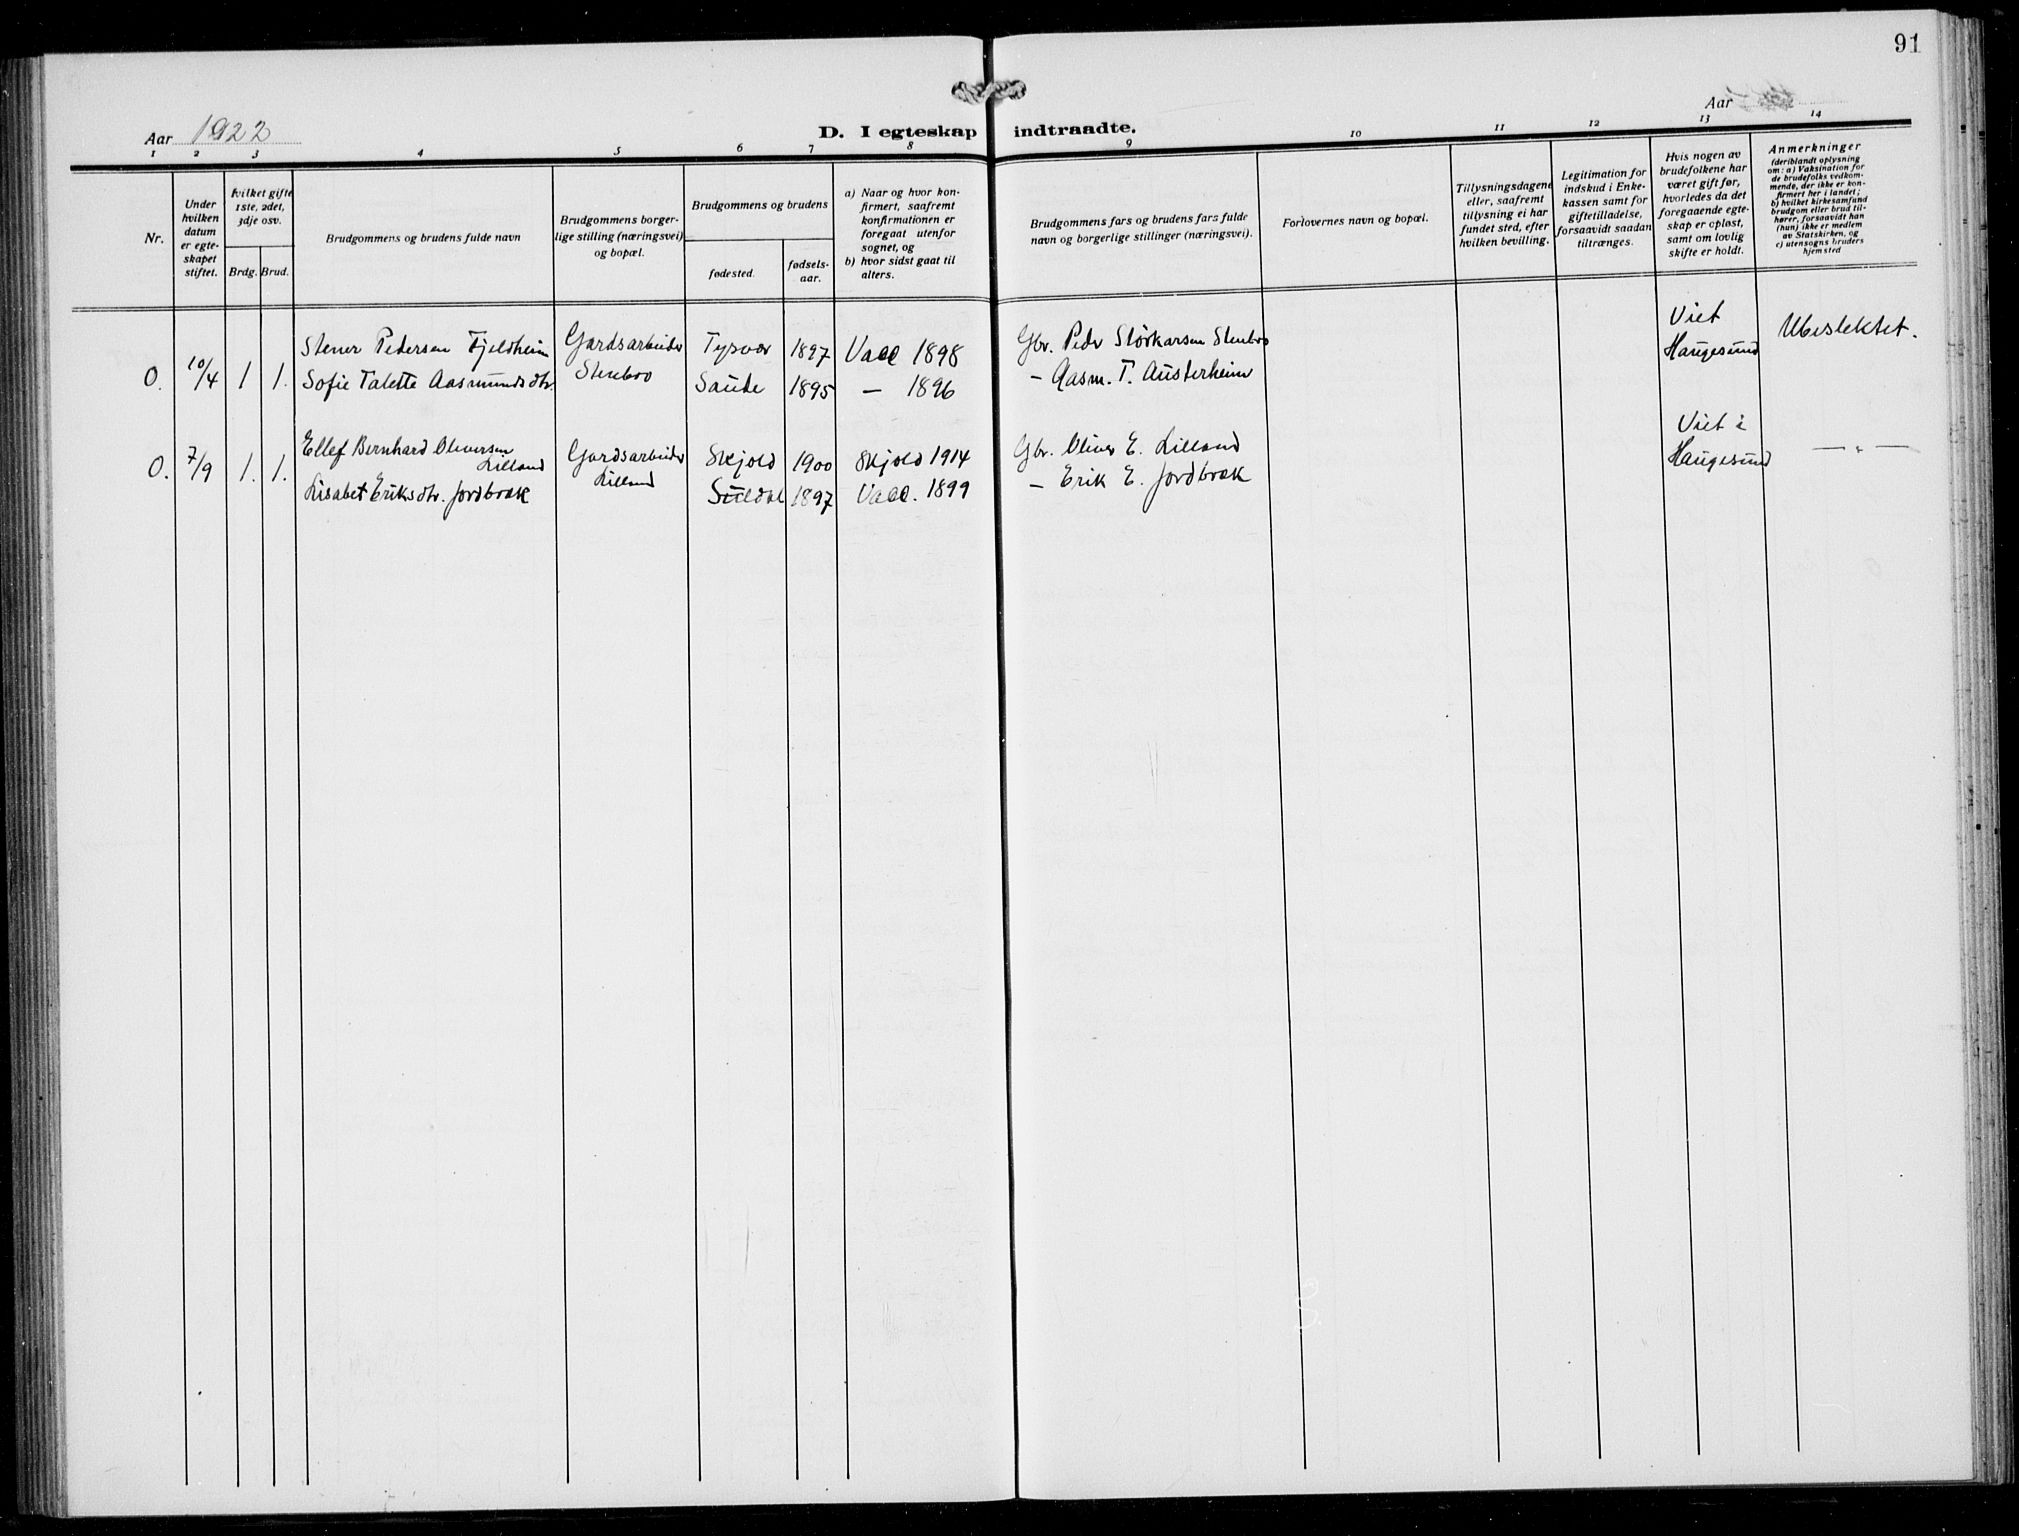 91
Aar 1922
D. I egteskap indtraadte.
Aar
1 2 3 4 5 6 7 8 9 10 11 12 13 14
Nr.
Under hvilken datum er egteskapet stiftet.
hvilket gifte 1ste, 2det, 3dje osv.
Brdg. Brud.
Brudgommens og brudens fulde navn
Brudgommens borger-
lige stilling (næringsvei)
og bopæl.
Brudgommens og brudens
fødested.
fødsels-
aar.
a) Naar og hvor kon-
firmert, saafremt
konfirmationen er
foregaat utenfor
sognet, og
b) hvor sidst gaat til
alters.
Brudgommens fars og brudens fars fulde
navn og borgerlige stillinger (næringsvei).
Forlovernes navn og bopæl.
Tillysningsdagene
eller, saafremt
tillysning ei har
fundet sted, efter
hvilken bevilling.
Legitimation for
indskud i Enke-
kassen samt for
giftetilladelse,
forsaavidt saadan
tiltrænges.
Hvis nogen av
brudefolkene har
været gift før,
hvorledes da det
foregaaende egte-
skap er opløst,
samt om lovlig
skifte er holdt.
Anmerkninger
(deriblandt oplysning
om: a) Vaksination for
de brudefolks vedkom-
mende, der ikke er kon-
firmert her i landet;
b) hvilket kirkesamfund
brudgom eller brud til-
hører, forsaavidt han
(hun) ikke er medlem
av Statskirken, og
c) utensogns bruders
hjemsted
O. 10/4 1 1.
Stener Pedersen Fjeldheim
Sofie Talette Aasmundsdtr.
Gardsarbeider
Stenebro
Tysvær 1897 Vacc 1898
Saude 1895 — 1896
Gbr. Peder Störkarsen Stenbro
— Aasm. T. Austerheim
Viet
Haugesund
Ubeslektet.
O. 7/9 1. 1.
Ellef Bernhard Oliversen
Lilland
Lisabet Eriksdtr. Jordbræk
Gardsarbeider
Lilland
Skjold 1900 Skjold 1914
Suldal 1897 Vacc. 1899
Gbr. Oliver E. Lilland
— Erik E. Jordbræk
Viet i
Haugesund
— " —